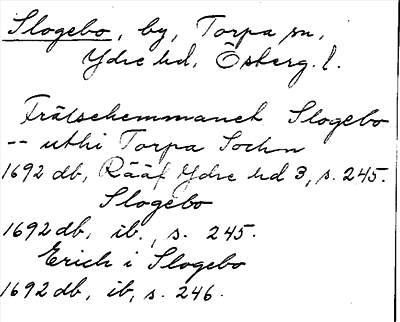 Slogebo, by, Torpa sn,
Ydre hd, Österg. l.
Frälsehemmanet Slogebo
-- uthi Torpa Sochn
1692 db, Rääf Ydre hd 3, s. 245.
Slogebo
1692 db, ib., s. 245.
Erich i Slogebo
1692 db, ib, s. 246.